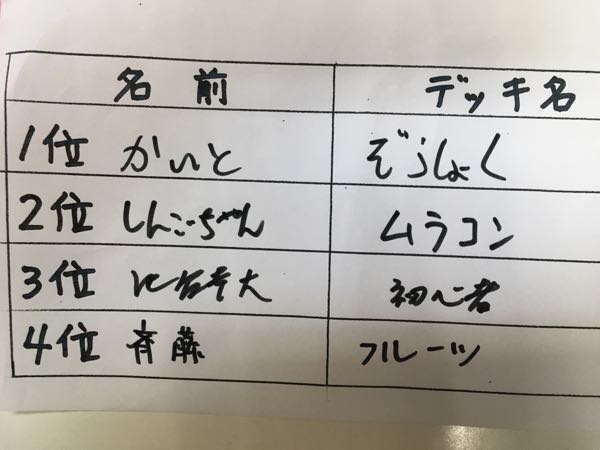 名前 デッキ名
1位 かいと ぞうしょく
2位 しんごちゃん ムラコン
3位 初心者
4位 斉藤 フルーツ